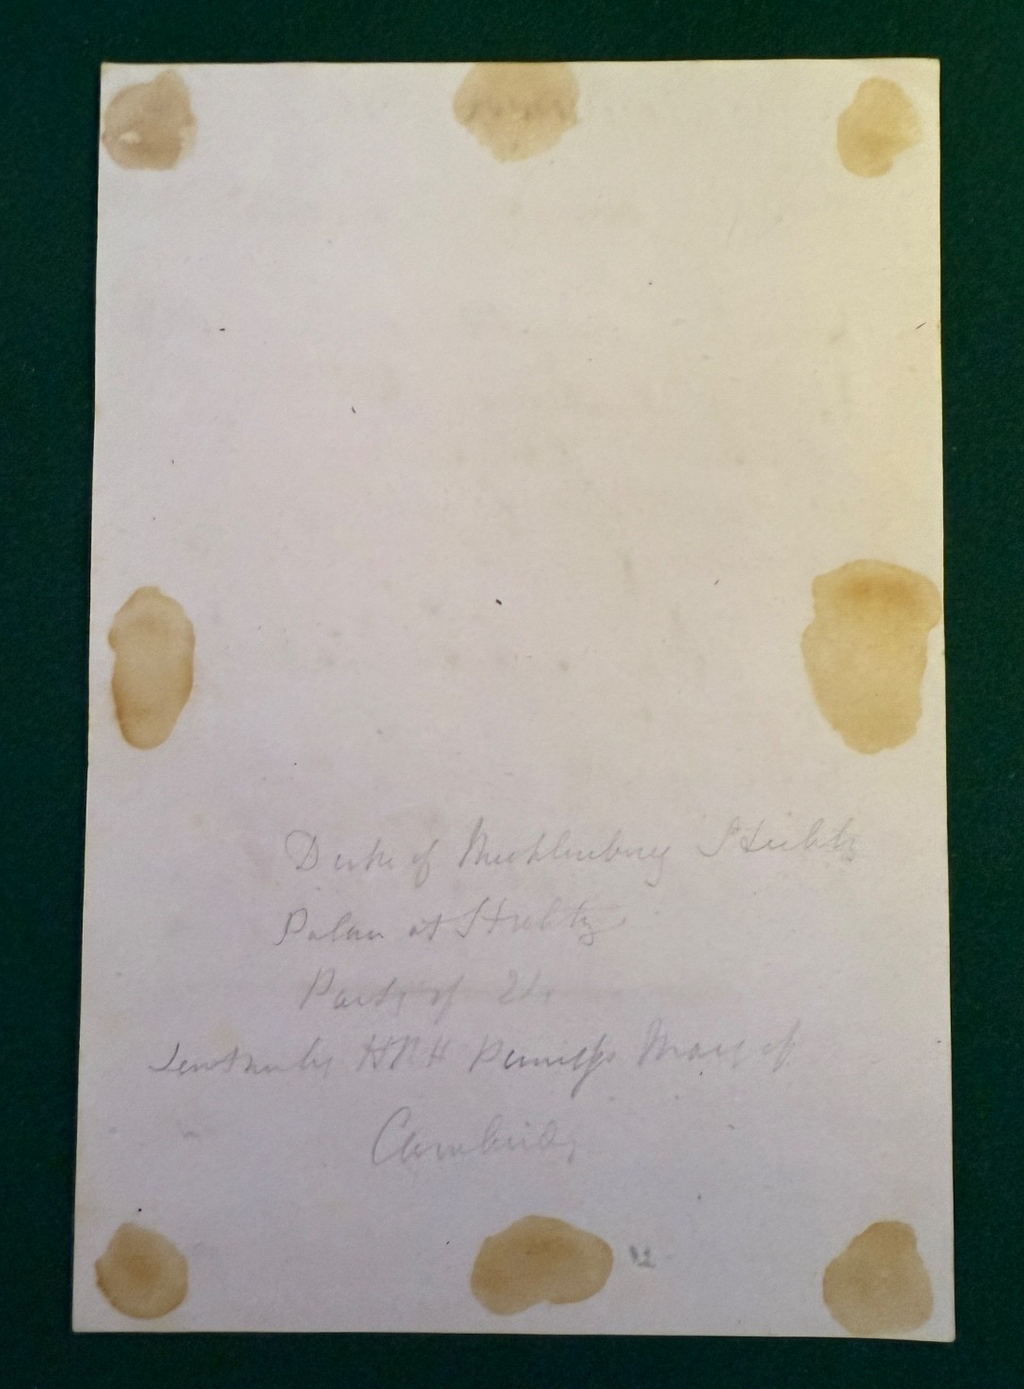 Duke of Mecklenburg Strelitz
Palace at Strelitz
Part of It.
Sent me by HRH Princess Mary of
Cambridge